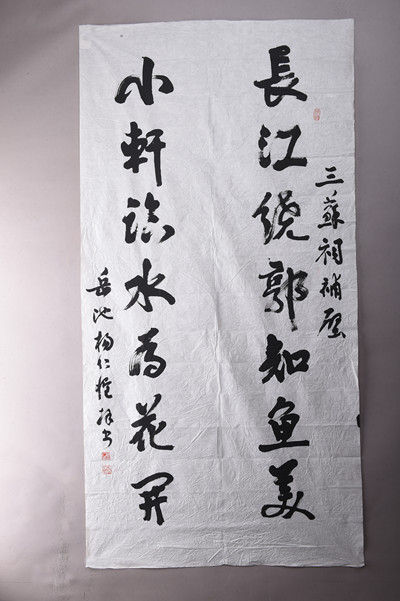 長江绕郭知鱼美
三蘇祠補壁
小軒臨水為花開
岳池楊仁